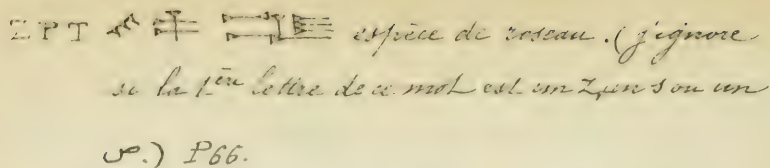 Z P T espèce de roseau. (j'ignore
si la 1ère lettre de ce mot est un Z, un s ou un
ص.) P66.